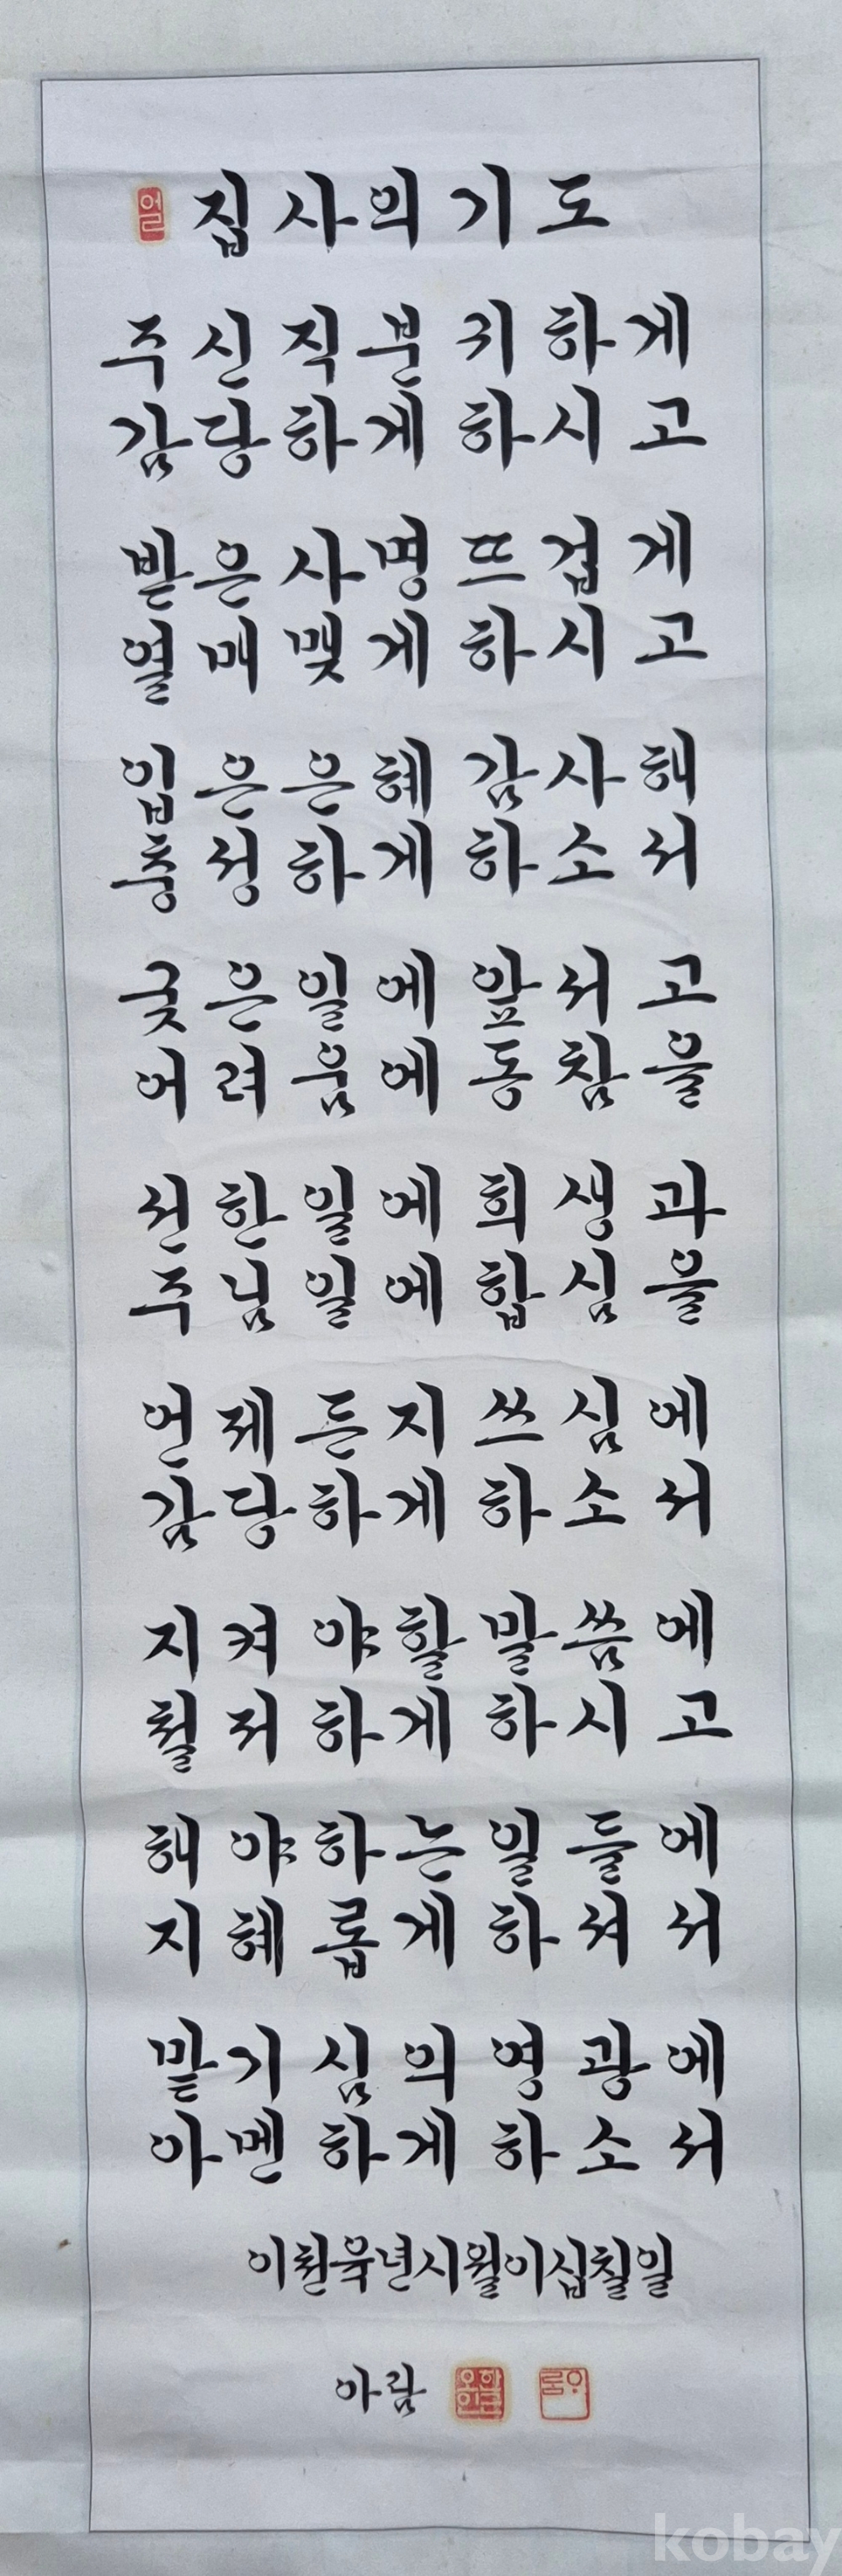 얼 집사의 기도
주신 직분 귀하게
감당하게 하시고
받은 사명 뜨겁게
열매 맺게 하시고
입은 은혜 감사해
충성하게 하소서
궂은 일에 앞서고
어려움에 동참을
선한 일에 희생과
주님 일에 합심을
언제든지 쓰심에
감당하게 하소서
지켜야할 말씀에
철저하게 하시고
해야하는 일들에
지혜롭게 하셔서
맡기심의 영광에
아멘하게 하소서
이천육년시월이십칠일
아람
kobay